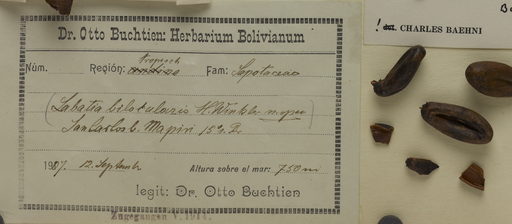 Dr. Otto Buchtien: Herbarium Bolivianum
Núm. Región: tropisch andina Fam: Sapotaceae
(Labatia bilocularis H. Winkler n. spec.)
San Carlos b. Mapiri 15° S.
1907. 12. September Altura sobre el mar: 750 m
legit: Dr. Otto Buchtien
Eingegangen V. 1911.
! det. CHARLES BAEHNI